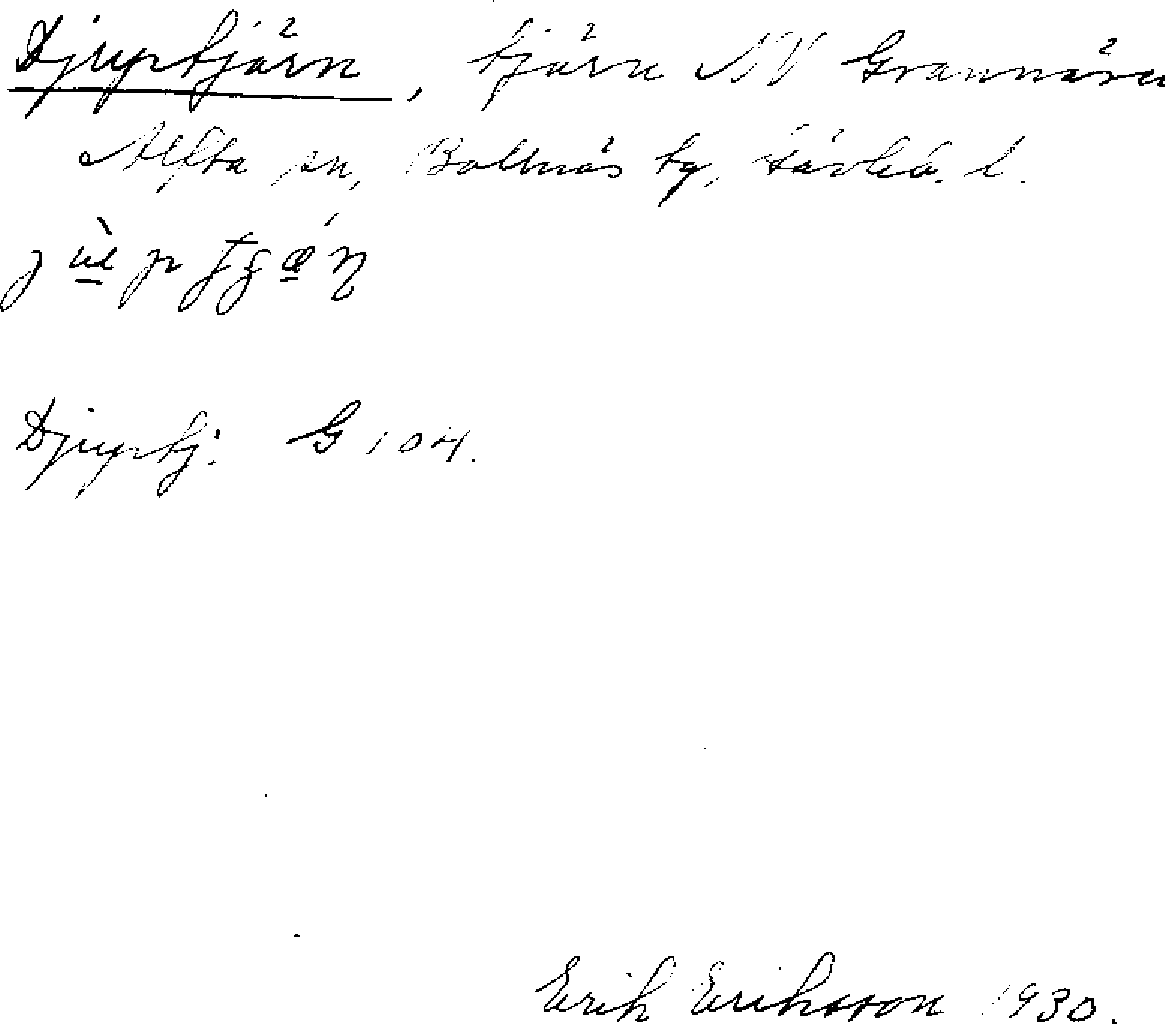 Djuptjärn, tjärn NV Grannäsen
Alfta sn, Bollnäs tg, Gävleb. l.
Djuptj: G 104.
Erik Eriksson 1930.